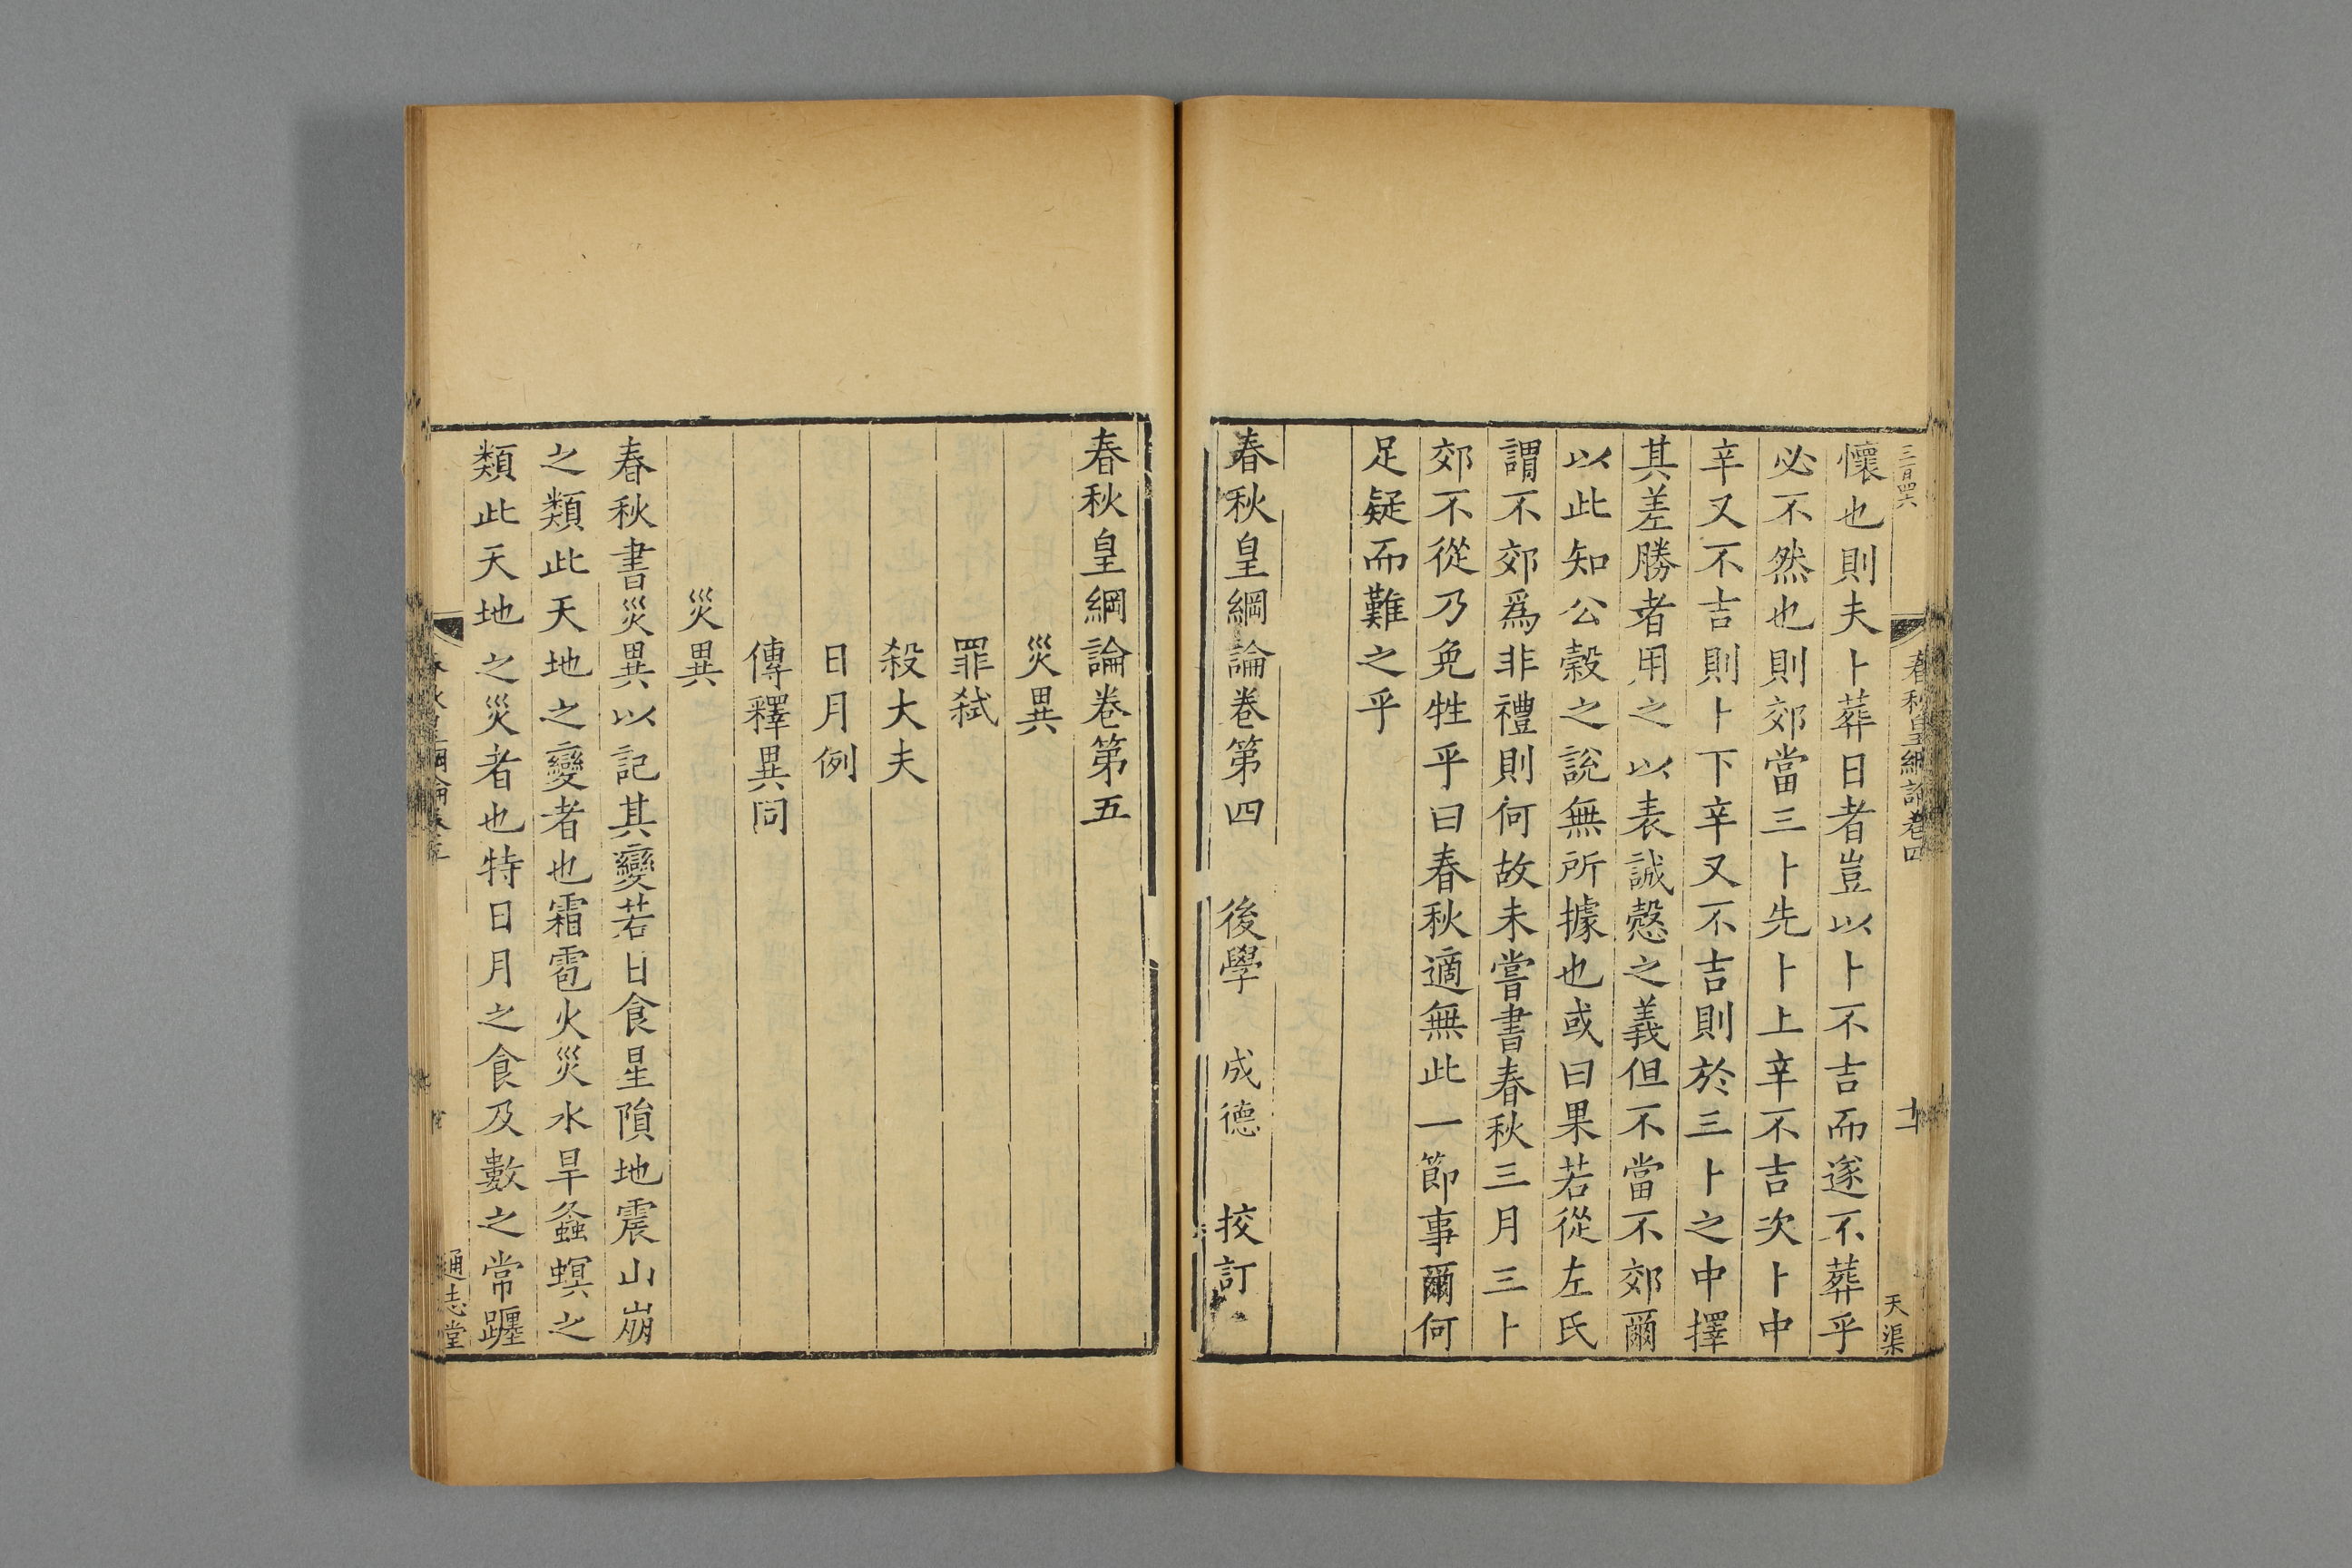 三百四六
春秋皇綱論卷四
十二
天渠
懷也則夫卜葬日者豈以卜不吉而遂不葬乎
必不然也則郊當三卜先卜上辛不吉次卜中
辛又不吉則卜下辛又不吉則於三卜之中擇
其差勝者用之以表誠慤之義但不當不郊爾
以此知公榖之說無所據也或曰果若從左氏
謂不郊爲非禮則何故未嘗書春秋三月三卜
郊不從乃免牲乎曰春秋適無此一節事爾何
足疑而難之乎
春秋皇綱論卷第四 後學 成德 挍訂
春秋皇綱論卷第五
災異
罪弑
殺大夫
日月例
傳釋異同
災異
春秋書災異以記其變若日食星隕地震山崩
之類此天地之變者也霜雹火災水旱螽螟之
類此天地之災者也特日月之食及數之常躔
通志堂